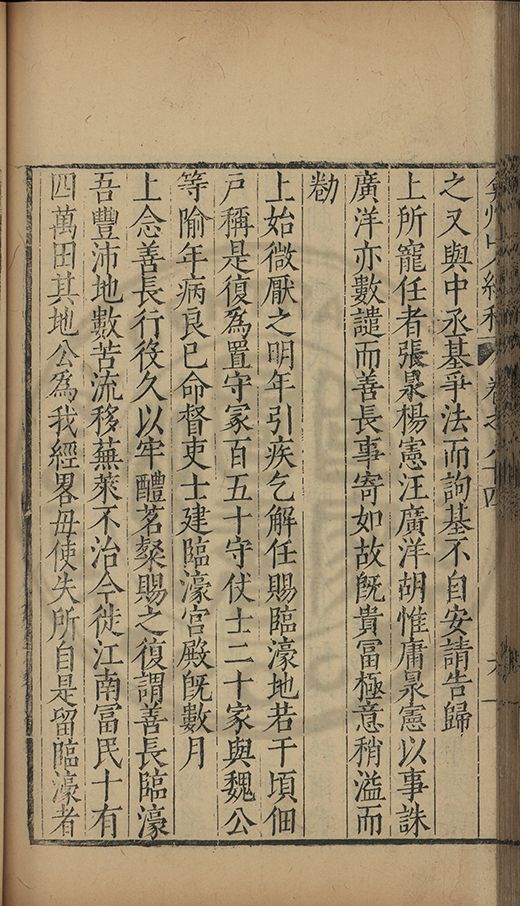 卷之八十四
之又與中丞基爭法而訽基不自安請告歸
上所寵任者張昶楊憲汪廣洋胡惟庸昶憲以事誅
廣洋亦數譴而善長事寄如故既貴冨極意稍溢而
勌
上始微厭之明年引疾乞解任賜臨濠地若干頃佃
戶稱是復為置守冢百五十守仗士二十家與魏公
等踰年病良已命督吏士建臨濠宮殿既數月
上念善長行役久以牢醴茗粲賜之復謂善長臨濠
吾豐沛地數苦流移蕪萊不治今徙江南冨民十有
四萬田其地公為我經畧毋使失所自是留臨濠者